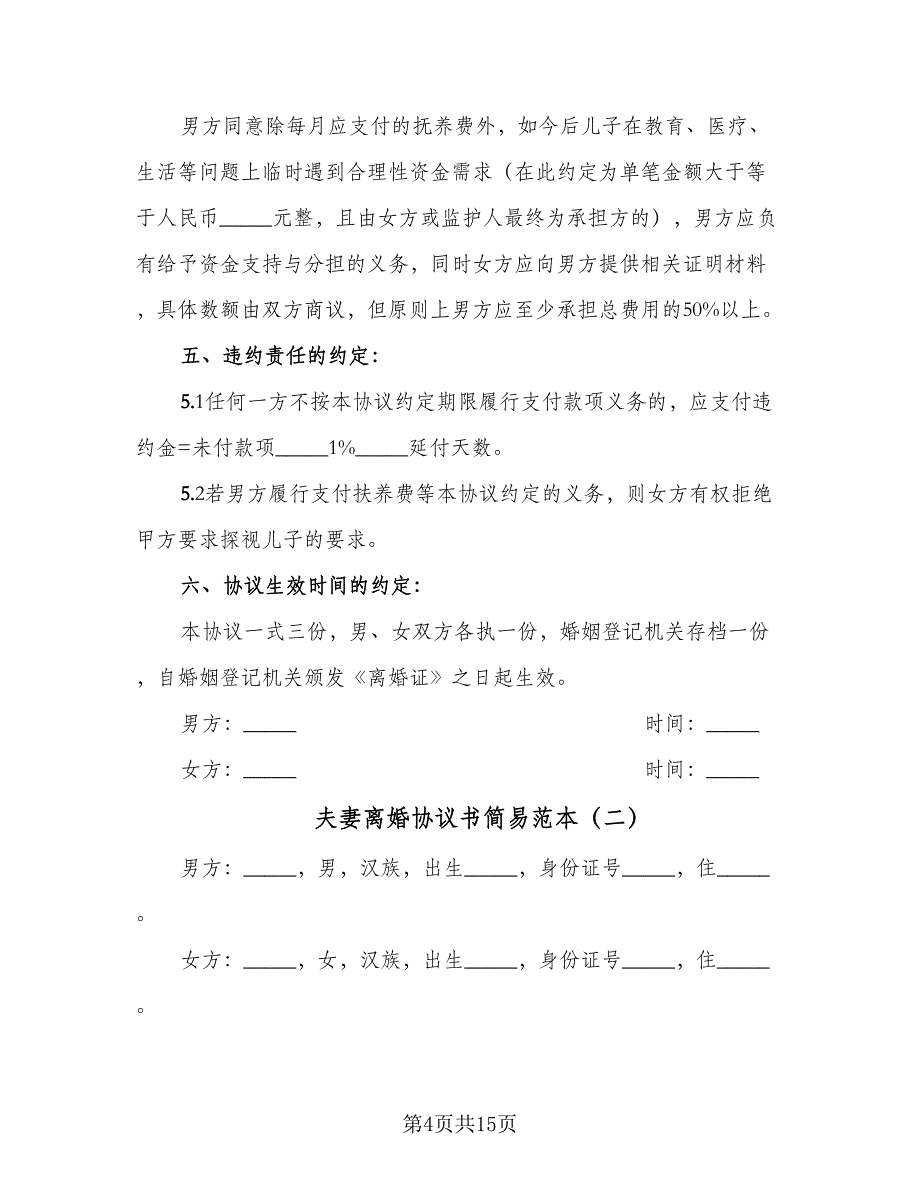 男方同意除每月应支付的抚养费外，如今后儿子在教育、医疗、
生活等问题上临时遇到合理性资金需求（在此约定为单笔金额大于等
于人民币_____元整，且由女方或监护人最终为承担方的），男方应负
有给予资金支持与分担的义务，同时女方应向男方提供相关证明材料
，具体数额由双方商议，但原则上男方应至少承担总费用的50%以上。
五、违约责任的约定：
5.1任何一方不按本协议约定期限履行支付款项义务的，应支付违
约金=未付款项_____1%_____延付天数。
5.2若男方履行支付扶养费等本协议约定的义务，则女方有权拒绝
甲方要求探视儿子的要求。
六、协议生效时间的约定：
本协议一式三份，男、女双方各执一份，婚姻登记机关存档一份
，自婚姻登记机关颁发《离婚证》之日起生效。
男方：_____ 时间：_____
女方：_____ 时间：_____
夫妻离婚协议书简易范本（二）
男方：_____，男，汉族，出生_____，身份证号_____，住_____
。
女方：_____，女，汉族，出生_____，身份证号_____，住_____
。
第4页共15页